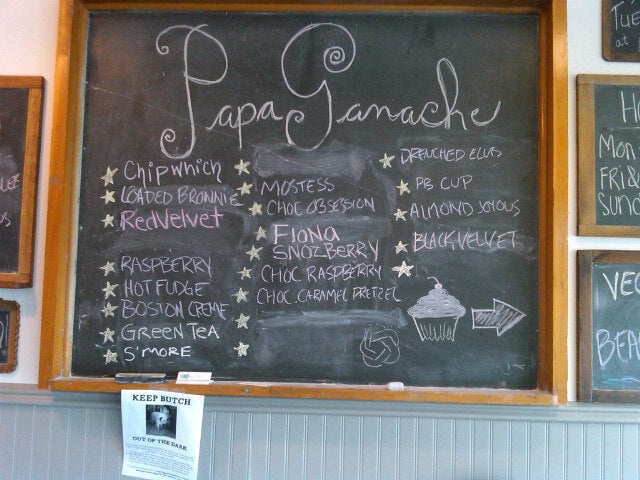 Papa Ganache
Chipwhich
LOADED BROWNIE
RedVelvet
RASPBERRY
HOT FUDGE
BOSTON CREME
GREEN TEA
S'MORE
MOSTESS
CHOC OBSESSION
FIONA
SNOZBERRY
CHOC RASPBERRY
CHOC. CARAMEL PRETZEL
DRENCHED ELVIS
PB CUP
ALMOND
BLACK VELVET
KEEP BUTCH
OUT OF THE DARK
TUES
at
Mon
FRI&
SUND
VEG
BEA